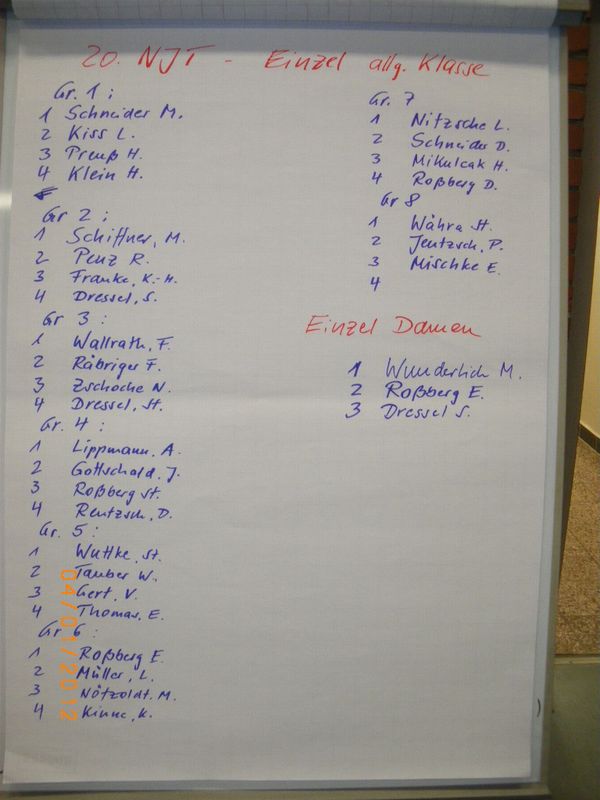 20. NJT - Einzel allg. Klasse
Gr. 1:
1 Schneider M.
2 Kiss L.
3 Preuß H.
4 Klein H.
Gr 2:
1 Schiffner, M.
2 Penz R.
3 Franke, K.-H.
4 Dressel, S.
Gr 3:
1 Wallrath, F.
2 Räbriger F.
3 Zschoche N.
4 Dressel, St.
Gr. 4:
1 Lippmann, A.
2 Gottschald, J.
3 Roßberg St.
4 Rentzsch, D.
Gr. 5:
1 Wuttke, St.
2 Tauber W.
3 Gert, V.
4 Thomas, E.
Gr 6:
1 Roßberg E.
2 Müller, L.
3 Nötzoldt. M.
4 Kinne, K.
Gr. 7
1 Nitzsche L.
2 Schneider D.
3 Mikulcak H.
4 Roßberg D.
Gr 8
1 Währa St.
2 Jentzsch, P.
3 Mischke E.
4
Einzel Damen
1 Wunderlich M.
2 Roßberg E.
3 Dressel S.
04/01/2012